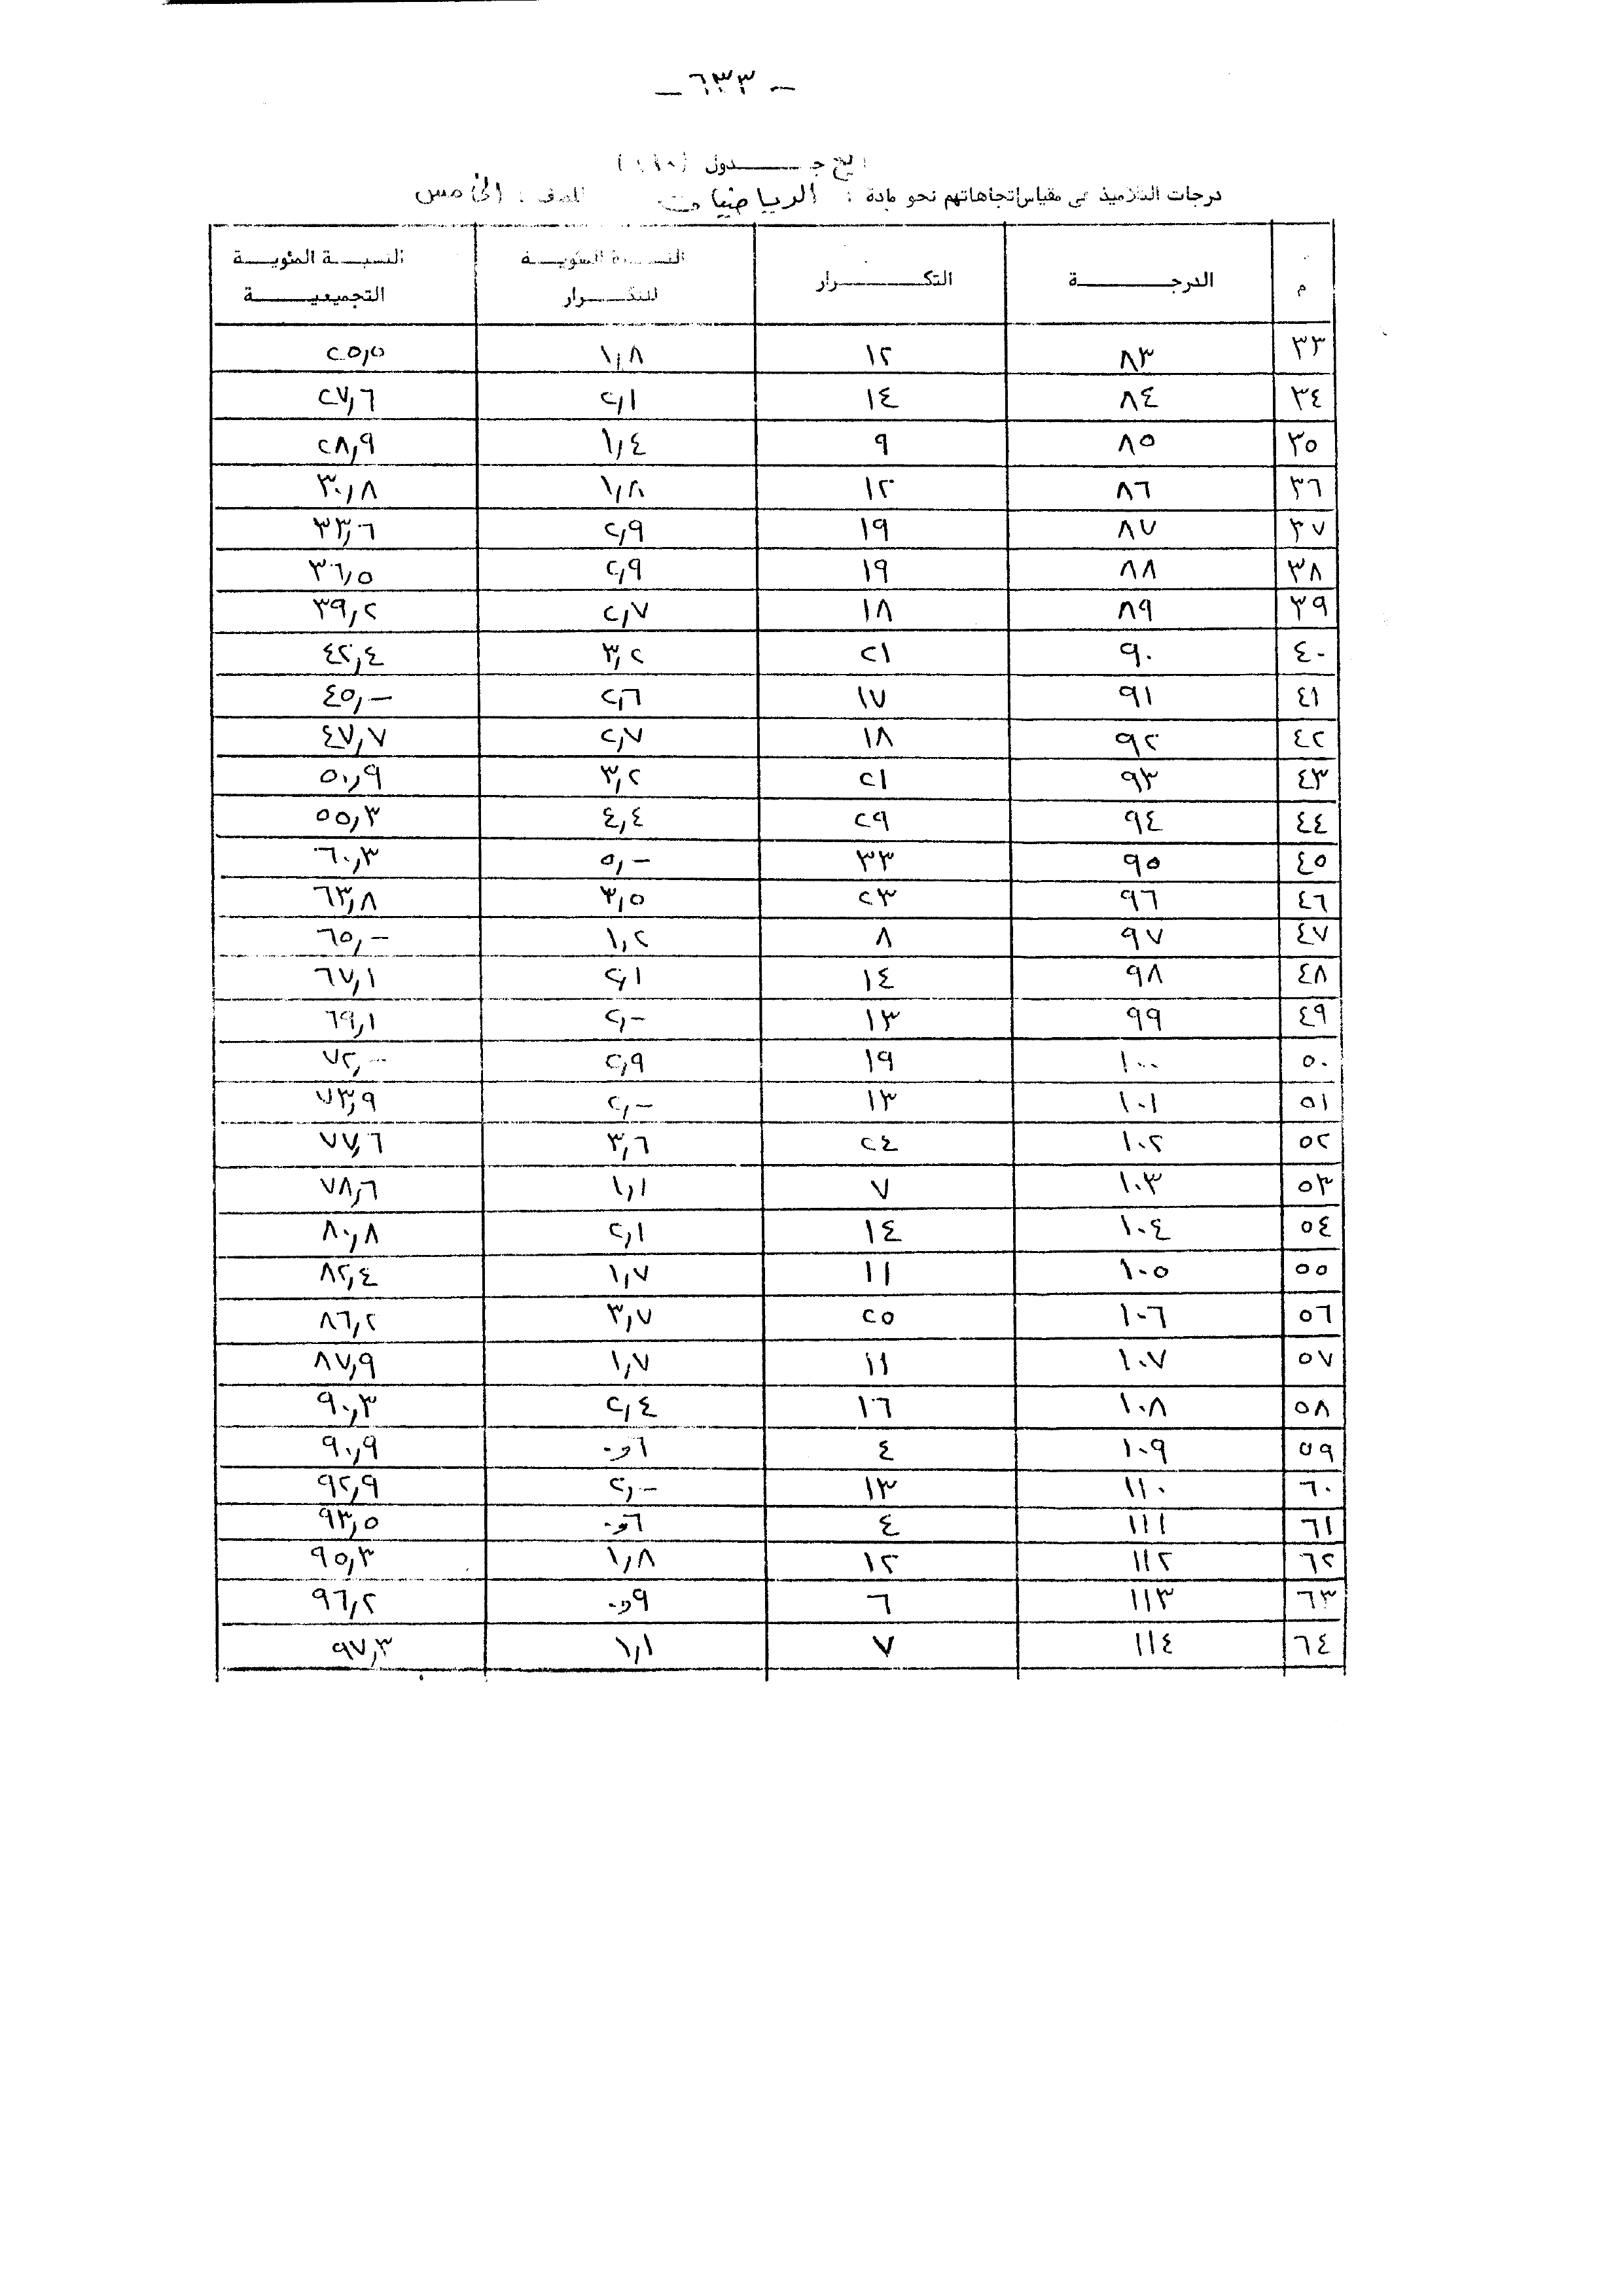 - ٦٣٣ -
جـــدول
درجات التلاميذ في مقياس اتجاهاتهم نحو مادة : الرياضيات للصف : الخامس
م الدرجــة التكــرار النســبة المئويــة للتكــرار النسبــة المئويــة التجميعيــة
٣٣ ٨٣ ١٢ ١,٨ ٢٥,٥
٣٤ ٨٤ ١٤ ٢,١ ٢٧,٦
٣٥ ٨٥ ٩ ١,٤ ٢٨,٩
٣٦ ٨٦ ١٢ ١,٨ ٣٠,٨
٣٧ ٨٧ ١٩ ٢,٩ ٣٣,٦
٣٨ ٨٨ ١٩ ٢,٩ ٣٦,٥
٣٩ ٨٩ ١٨ ٢,٧ ٣٩,٢
٤٠ ٩٠ ٢١ ٣,٢ ٤٢,٤
٤١ ٩١ ١٧ ٢,٦ ٤٥,-
٤٢ ٩٢ ١٨ ٢,٧ ٤٧,٧
٤٣ ٩٣ ٢١ ٣,٢ ٥٠,٩
٤٤ ٩٤ ٢٩ ٤,٤ ٥٥,٣
٤٥ ٩٥ ٣٣ ٥,- ٦٠,٣
٤٦ ٩٦ ٢٣ ٣,٥ ٦٣,٨
٤٧ ٩٧ ٨ ١,٢ ٦٥,-
٤٨ ٩٨ ١٤ ٢,١ ٦٧,١
٤٩ ٩٩ ١٣ ٢,- ٦٩,١
٥٠ ١٠٠ ١٩ ٢,٩ ٧٢,-
٥١ ١٠١ ١٣ ٢,- ٧٣,٩
٥٢ ١٠٢ ٢٤ ٣,٦ ٧٧,٦
٥٣ ١٠٣ ٧ ١,١ ٧٨,٦
٥٤ ١٠٤ ١٤ ٢,١ ٨٠,٨
٥٥ ١٠٥ ١١ ١,٧ ٨٢,٤
٥٦ ١٠٦ ٢٥ ٣,٧ ٨٦,٢
٥٧ ١٠٧ ١١ ١,٧ ٨٧,٩
٥٨ ١٠٨ ١٦ ٢,٤ ٩٠,٣
٥٩ ١٠٩ ٤ ٦و٠ ٩٠,٩
٦٠ ١١٠ ١٣ ٢,- ٩٢,٩
٦١ ١١١ ٤ ٦و٠ ٩٣,٥
٦٢ ١١٢ ١٢ ١,٨ ٩٥,٣
٦٣ ١١٣ ٦ ٩و٠ ٩٦,٢
٦٤ ١١٤ ٧ ١,١ ٩٧,٣